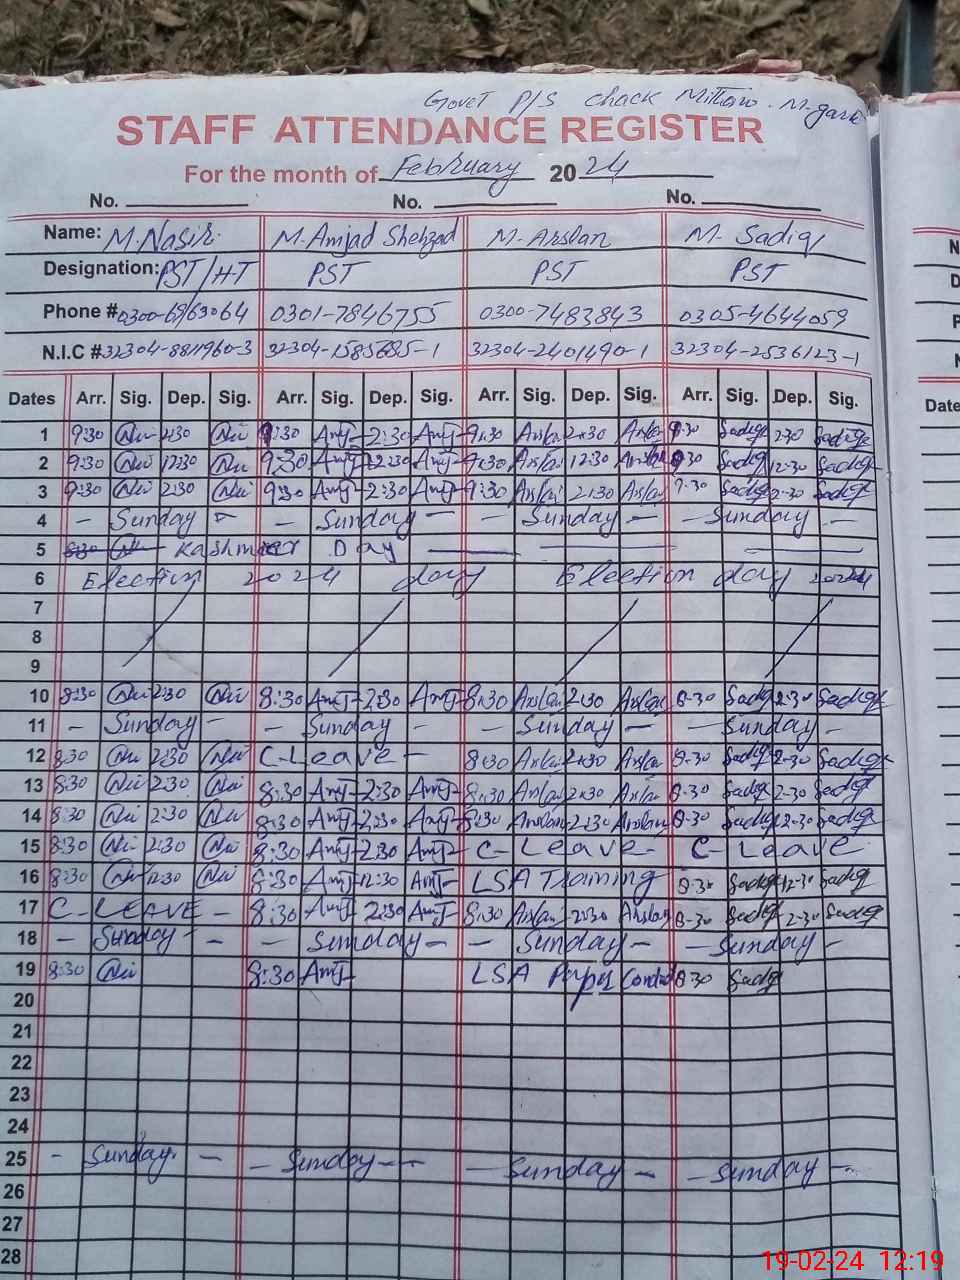 Govet P/S chack Mithano. M-garh
STAFF ATTENDANCE REGISTER
For the month of February 2024
No. No. No.
Name: M.Nasir. M.Amjad Shehzad M-Arslan M- Sadiq
Designation: PST/HT PST PST PST
Phone # 0300-6963064 0301-7846755 0300-7483843 0305-4644059
N.I.C # 32304-8811960-3 32304-1585685-1 32304-2401490-1 32304-2536123-1
Dates Arr. Sig. Dep. Sig. Arr. Sig. Dep. Sig. Arr. Sig. Dep. Sig. Arr. Sig. Dep. Sig.
1 9:30 2:30 9:30 Amj 2:30 Amj 9:30 Arslan 2:30 Arslan 9:30 Sadiq 2:30 Sadiq
2 9:30 12:30 9:30 Amj 12:30 Amj 9:30 Arslan 12:30 Arslan 9:30 Sadiq 12:30 Sadiq
3 9:30 2:30 9:30 Amj 2:30 Amj 9:30 Arslan 2:30 Arslan 9:30 Sadiq 2:30 Sadiq
4 - Sunday - - Sunday - - Sunday - - Sunday -
5 8:30 Kashmeer Day
6 Election 2024 day Election day 2024
7
8
9
10 8:30 2:30 8:30 Amj 2:30 Amj 8:30 Arslan 2:30 Arslan 8:30 Sadiq 2:30 Sadiq
11 - Sunday - - Sunday - - Sunday - - Sunday -
12 8:30 2:30 C-Leave - 8:30 Arslan 2:30 Arslan 8:30 Sadiq 2:30 Sadiq
13 8:30 2:30 8:30 Amj 2:30 Amj 8:30 Arslan 2:30 Arslan 8:30 Sadiq 2:30 Sadiq
14 8:30 2:30 8:30 Amj 2:30 Amj 8:30 Arslan 2:30 Arslan 8:30 Sadiq 2:30 Sadiq
15 8:30 2:30 8:30 Amj 2:30 Amj C- Leave - C- Leave
16 8:30 12:30 8:30 Amj 12:30 Amj LSA Training 8:30 Sadiq 12:30 Sadiq
17 C-LEAVE - 8:30 Amj 2:30 Amj 8:30 Arslan 2:30 Arslan 8:30 Sadiq 2:30 Sadiq
18 - Sunday - - - Sunday - - Sunday - - Sunday -
19 8:30 8:30 Amj LSA Paper 8:30 Sadiq
20
21
22
23
24
25 - Sunday. - - Sunday - - - Sunday - - Sunday -
26
27
28
N
D
P
N
Date
19-02-24 12:19